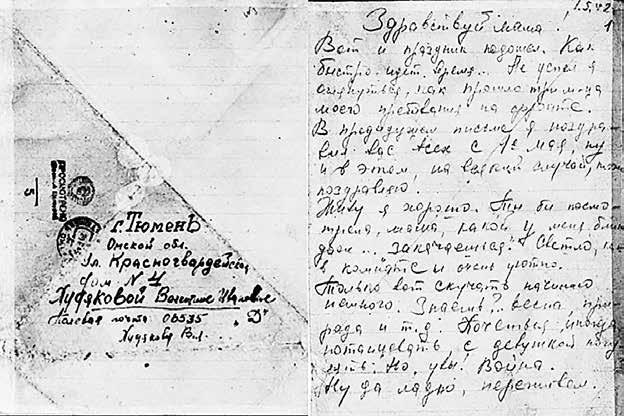 ПРОСМОТРЕНО
5
г. Тюмень
Омской обл.
Ул. Красногвардейская
дом № 4
Худяковой Валентине Ивановне
Полевая почта 06535 "Д"
Худяков Вл.
1.5.42
1
Здравствуй мама!
Вот и праздник подошел. Как
быстро идет время... Не успел я
оглянуться, как прошло три м-ца
моего пребывания на фронте.
В предыдущем письме я поздра-
вил вас всех с 1ое мая, ну
и в этом, на всякий случай, тоже
поздравляю.
Живу я хорошо. Ты бы посмо-
трела, мама, какой у меня блин-
даж... закачаешься! Светло, как
в комнате и очень уютно.
Только вот скучать начинаю
немного. Знаешь? весна, при-
рода и т.д. Хочется иногда
потанцевать, с девушкой
Но, увы! Война.
Ну да ладно, переживем.